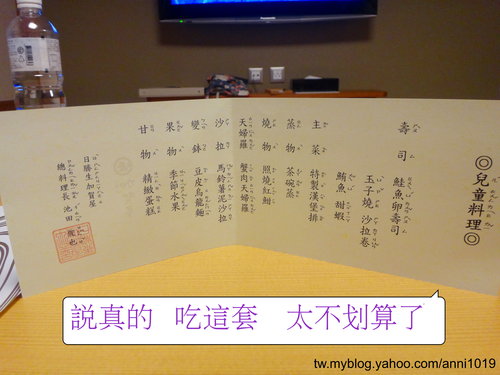 ◎兒童料理◎
壽司 鮭魚卵壽司
玉子燒 沙拉卷
鮪魚 甜蝦
主菜 特製漢堡排
蒸物 茶碗蒸
燒物 照燒紅魽
天婦羅 蟹肉天婦羅
沙拉 馬鈴薯泥沙拉
變鉢 豆皮烏龍麵
果物 季節水果
甘物 精緻蛋糕
日勝生加賀屋
總料理長 池田 也
説真的 吃這套 太不划算了
tw.myblog.yahoo.com/anni1019
Panasonic